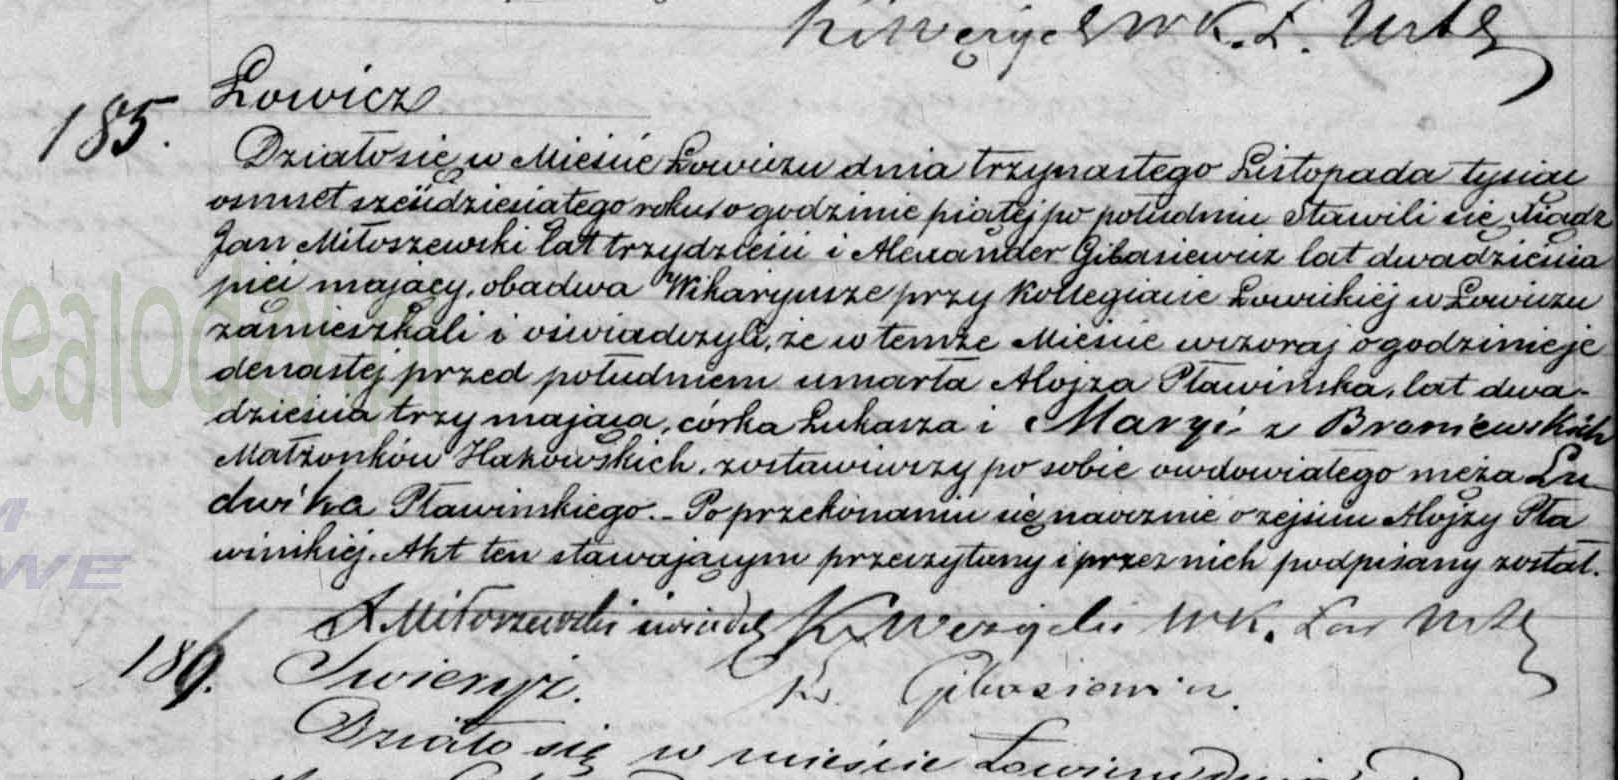 K. Węży W K. Ł. Urz
185.
Łowicz
Działo się w Mieście Łowiczu dnia trzynastego Listopada tysiąc
osmset sześćdziesiątego roku, o godzinie piątej po południu Stawili się Xiądz
Jan Miłoszewski lat trzydzieści i Alexander Gibasiewicz lat dwadzieścia
pięć mający, obadwa Wikaryusze przy Kollegiacie Łowickiéj w Łowiczu
zamieszkali i oświadczyli, że w temże Mieście wczoraj o godzinie je
denastéj przed południem umarła Alojza Pławińska, lat dwa-
dzieścia trzy mająca, córka Łukasza i Maryi z Broniewskich
Małżonków Hakowskich, zostawiwszy po sobie owdowiałego męża Lu-
dwika Pławińskiego. - Po przekonaniu się naocznie o zejściu Alojzy Pła
wińskiéj, Akt ten stawającym przeczytany i przez nich podpisany został.
X Miłoszewski świadek X. Wężyk WK. Łow Urz
186.
Ks. Gibasiewicz.
Działo się w mieście Łowiczu dnia
ealodzy.pl
M
WE